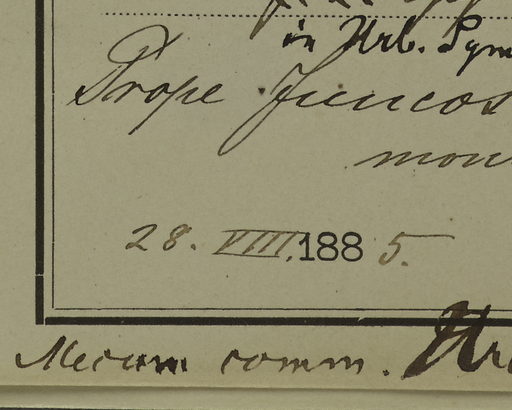 in Urb. Sym
Prope Juncos
mon
28. VIII. 1885.
Mecum comm. Ur